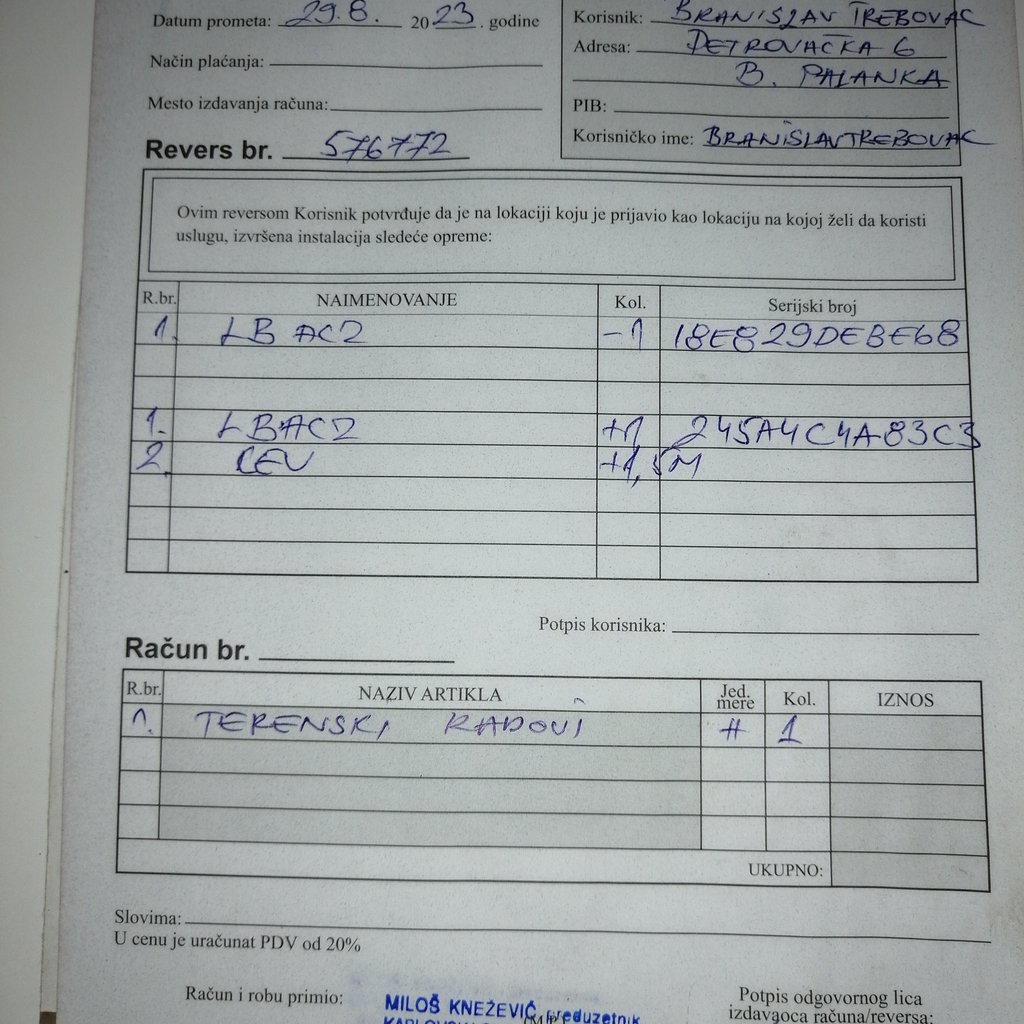 Datum prometa: 29.8. 2023. godine
Način plaćanja:
Mesto izdavanja računa:
Revers br. 576772
Korisnik: BRANISLAV TREBOVAC
Adresa: PETROVAČKA 6
B. PALANKA
PIB:
Korisničko ime: BRANISLAVTREBOVAC
Ovim reversom Korisnik potvrđuje da je na lokaciji koju je prijavio kao lokaciju na kojoj želi da koristi
uslugu, izvršena instalacija sledeće opreme:
R.br. NAIMENOVANJE Kol. Serijski broj
1. LB AC2 -1 18E829DEBE68
1. LBAC2 +1 245A4C4A83C3
2. CEV +1,5M
Potpis korisnika:
Račun br.
R.br. NAZIV ARTIKLA Jed. mere Kol. IZNOS
1. TERENSKI RADOVI # 1
UKUPNO:
Slovima:
U cenu je uračunat PDV od 20%
Račun i robu primio:
MILOŠ KNEŽEVIĆ, preduzetnik
(M.P.)
Potpis odgovornog lica
izdavaoca računa/reversa: